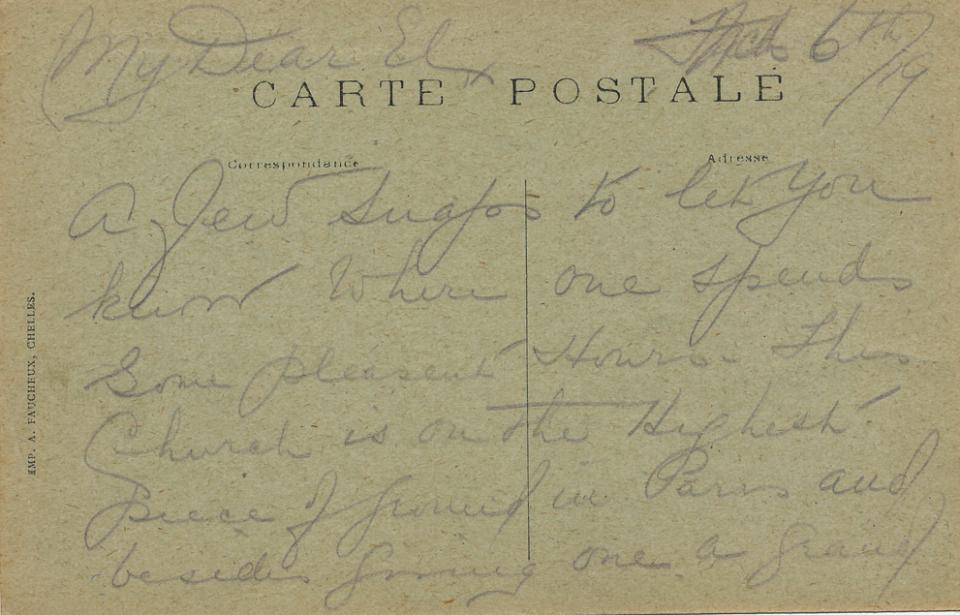 My Dear El 6th/19
CARTE POSTALE
Correspondance Adresse
A few snaps to let you
know Where one spends
Some pleasent Hours. This
Church is on the Highest
piece of ground in Paris and
besides giving one a grand
IMP. A. FAUCHEUX, CHELLES.